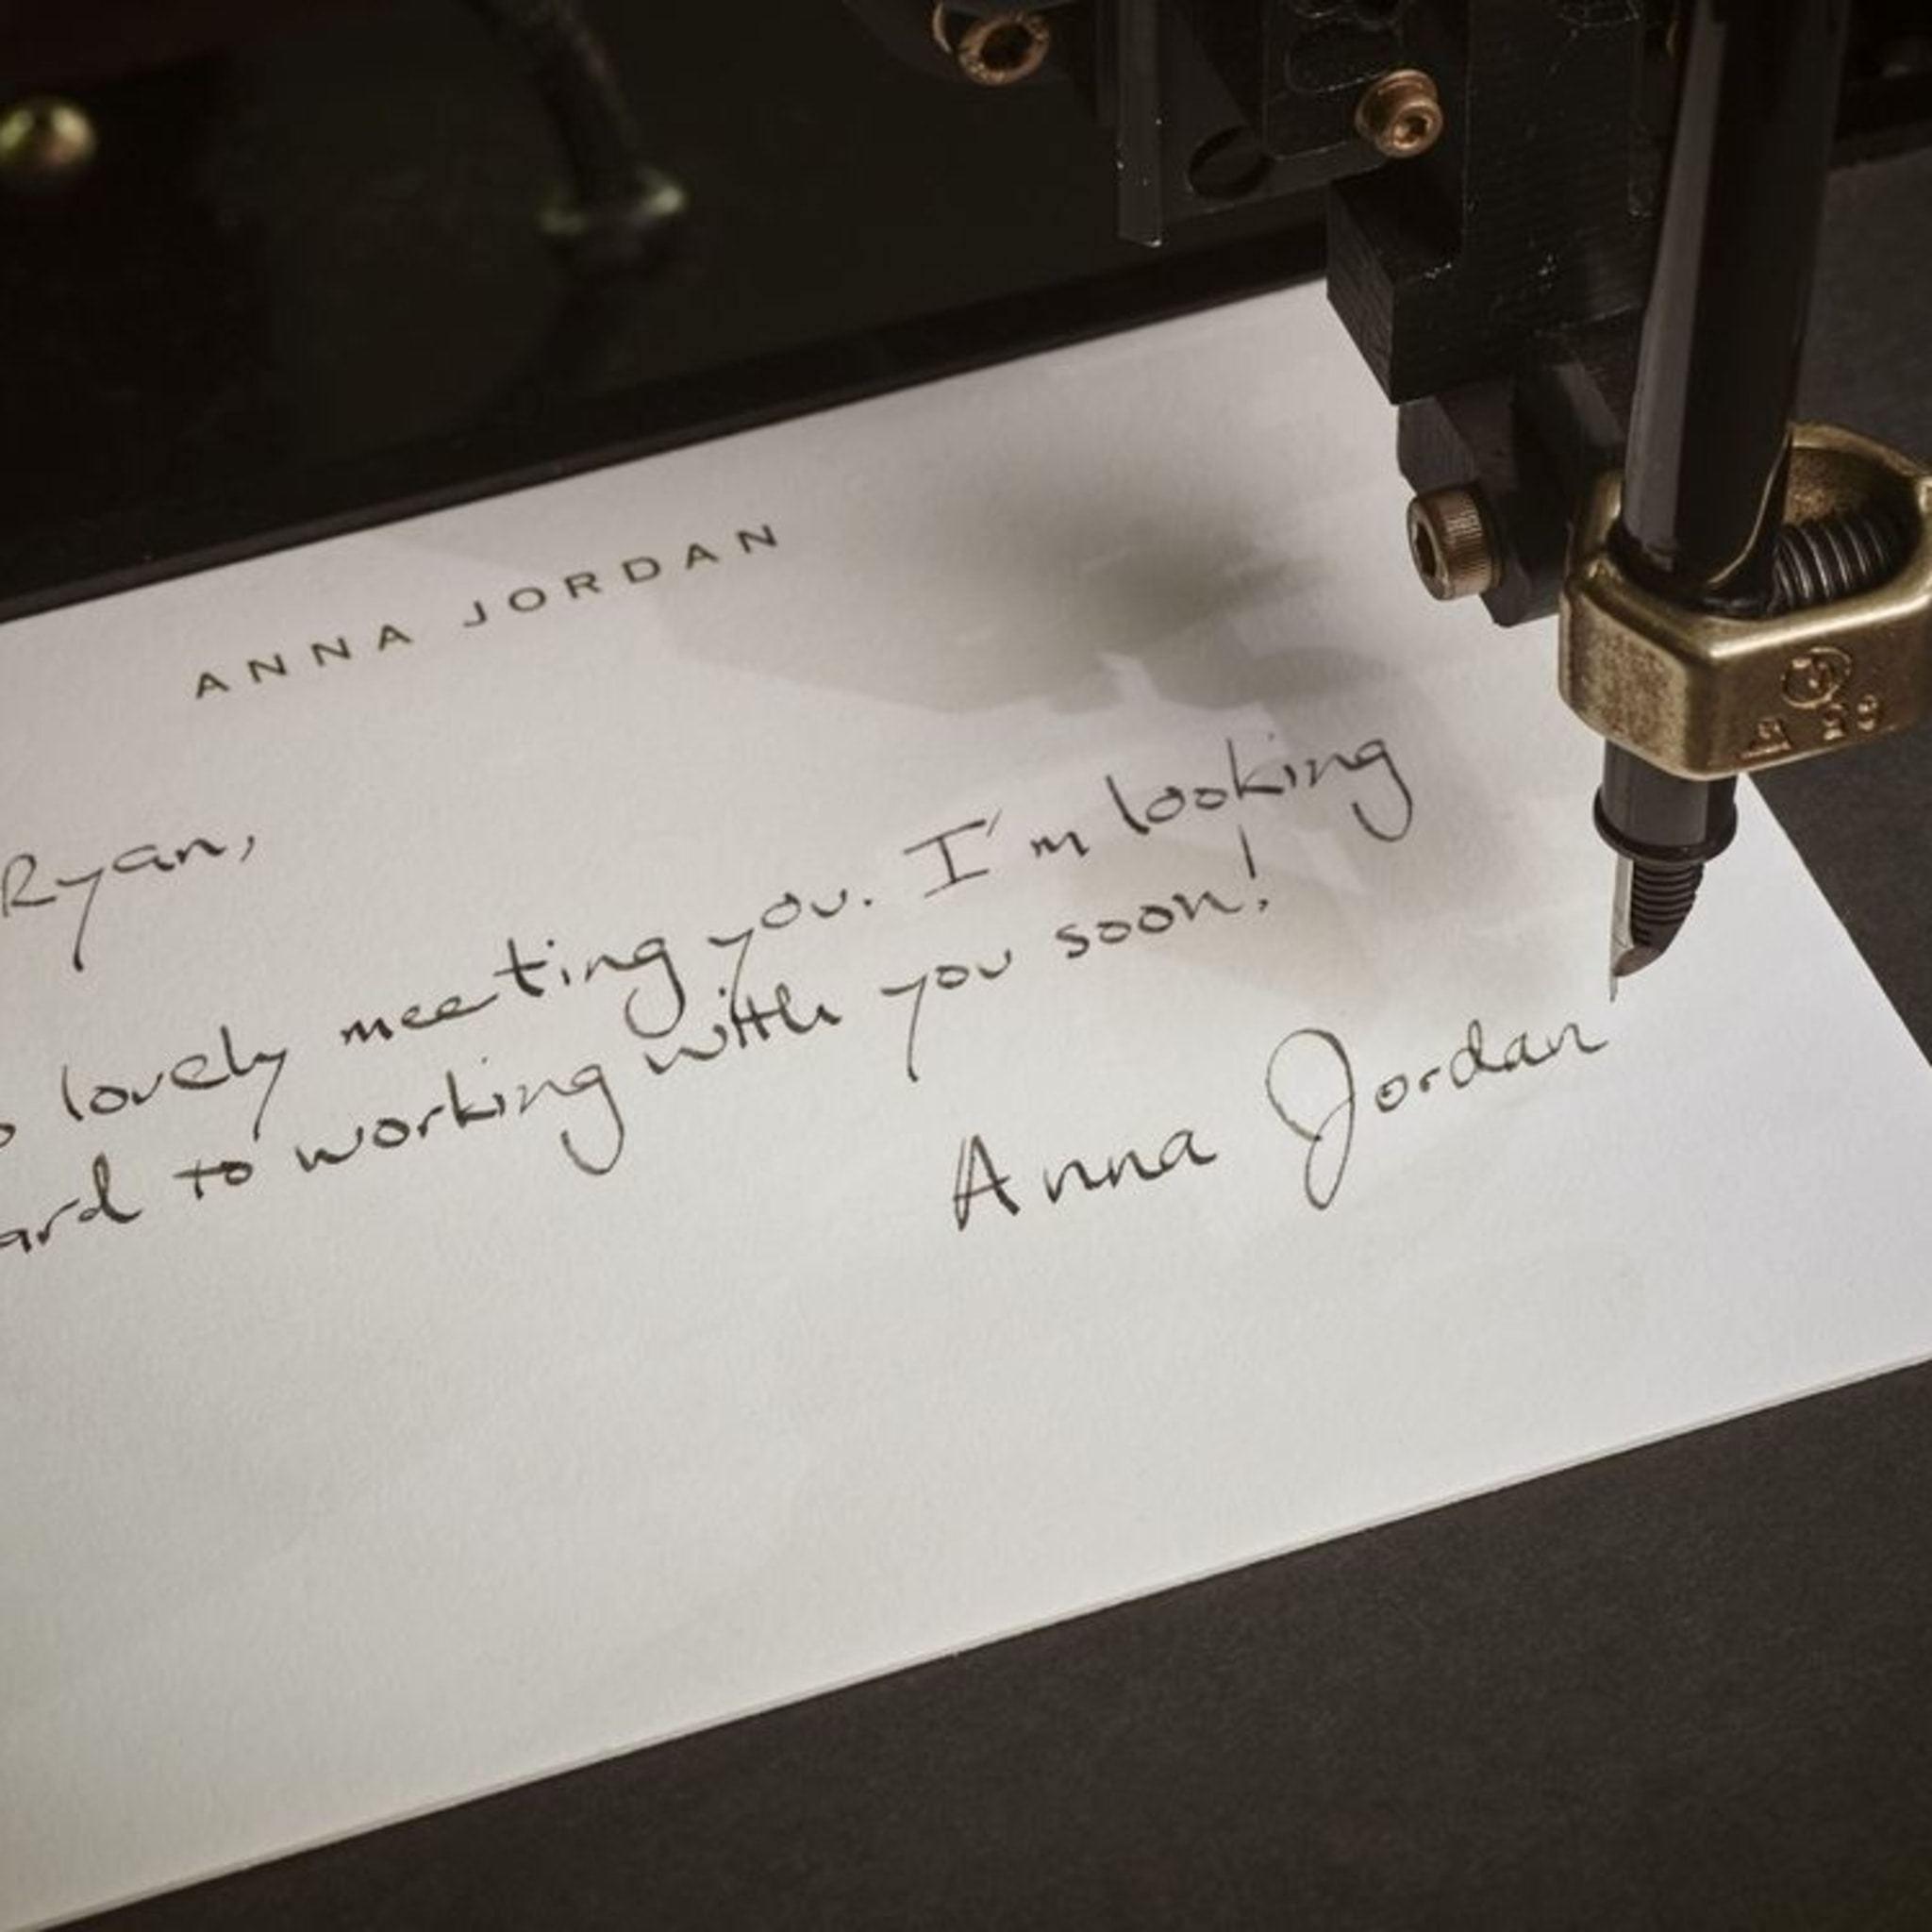 ANNA JORDAN
Ryan,
lovely meeting you. I'm looking
ard to working with you soon!
Anna Jordan